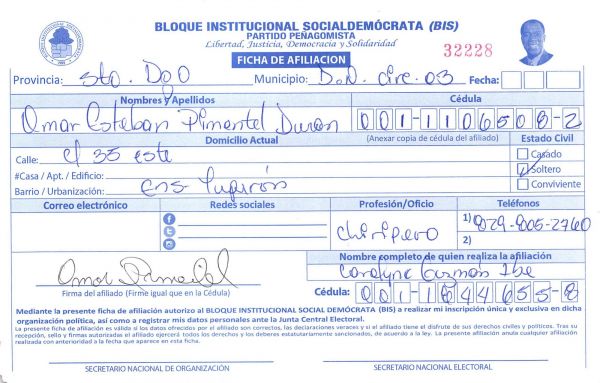 BLOQUE INSTITUCIONAL SOCIALDEMÓCRATA (BIS)
PARTIDO PEÑAGOMISTA
Libertad, Justicia, Democracia y Solidaridad
FICHA DE AFILIACION
32228
Provincia: Sto. Dgo Municipio: D.N. Circ. 03 Fecha:
Nombres y Apellidos Cédula
Omar Esteban Pimentel Duran 001-1106508-2
Domicilio Actual (Anexar copia de cédula del afiliado) Estado Civil
Calle: C/ 35 este Casado
#Casa / Apt. / Edificio: Soltero
Barrio / Urbanización: Ens. Luperón Conviviente
Correo electrónico Redes sociales Profesión/Oficio Teléfonos
Chiripero 1) 829-805-2760
2)
Nombre completo de quien realiza la afiliación
Omar Pimentel Carolyne Guzmán
Firma del afiliado (Firme igual que en la Cédula) Cédula: 001-1844655-8
Mediante la presente ficha de afiliación autorizo al BLOQUE INSTITUCIONAL SOCIAL DEMÓCRATA (BIS) a realizar mi inscripción única y exclusiva en dicha
organización política, así como a registrar mis datos personales ante la Junta Central Electoral.
La presente ficha de afiliación es válida si los datos ofrecidos por el afiliado son correctos, las declaraciones veraces y si el afiliado tiene el disfrute de sus derechos civiles y políticos. Tras su
recepción, sello y firmas autorizadas el afiliado ejercerá todos los derechos y los deberes estatutariamente sancionados, de acuerdo a la ley. La presente afiliación anula cualquier afiliación
realizada con anterioridad a la fecha que aparece en esta ficha.
SECRETARIO NACIONAL DE ORGANIZACIÓN SECRETARIO NACIONAL ELECTORAL